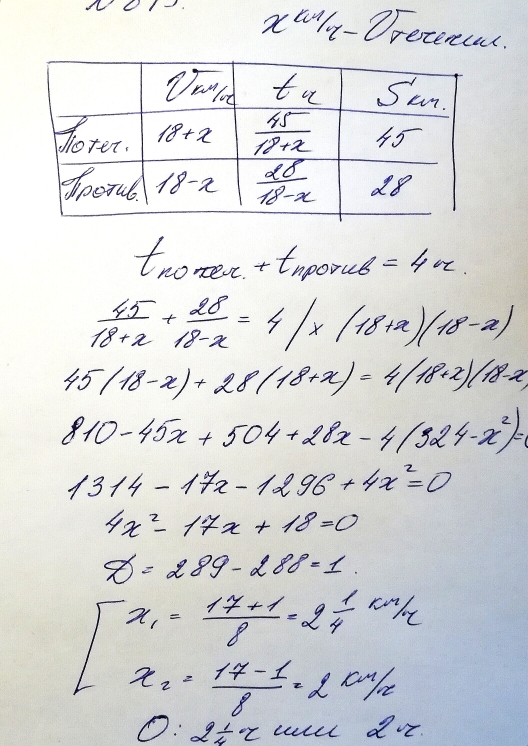 x км/ч - Vтечения.
Vкм/ч tч Sкм.
По теч. 18+x 45/(18+x) 45
Против. 18-x 28/(18-x) 28
tпо теч. + tпротив = 4 ч.
45/(18+x) + 28/(18-x) = 4 / × (18+x)(18-x)
45(18-x) + 28(18+x) = 4(18+x)(18-x
810 - 45x + 504 + 28x - 4(324-x²)=0
1314 - 17x - 1296 + 4x² = 0
4x² - 17x + 18 = 0
D = 289 - 288 = 1.
[ x₁ = (17+1)/8 = 2 1/4 км/ч
x₂ = (17-1)/8 = 2 км/ч
О: 2 1/4 ч или 2 ч.